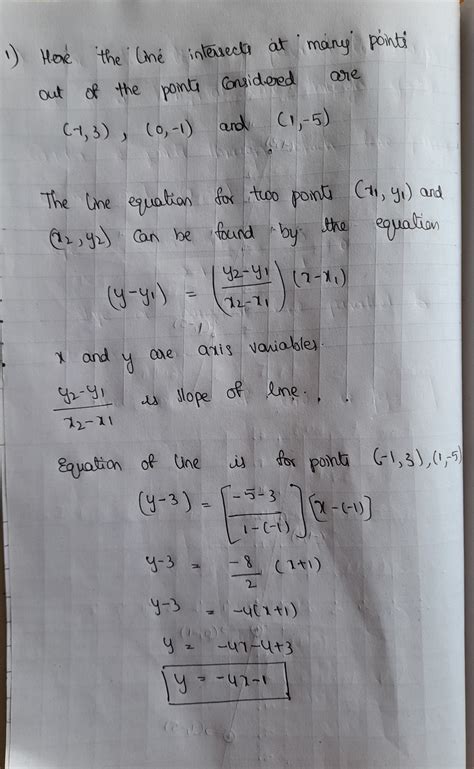 1) Here the line intersects at many points
out of the points considered are
(-1,3), (0,-1) and (1,-5)
The line equation for two points (x1, y1) and
(x2, y2) can be found by the equation
(y-y1) = ((y2-y1)/(x2-x1)) (x-x1)
x and y are axis variables.
(y2-y1)/(x2-x1) is slope of line.
Equation of line is for points (-1,3),(1,-5)
(y-3) = [(-5-3)/(1-(-1))] [x-(-1)]
y-3 = -8/2 (x+1)
y-3 = -4(x+1)
y = -4x-4+3
y = -4x-1